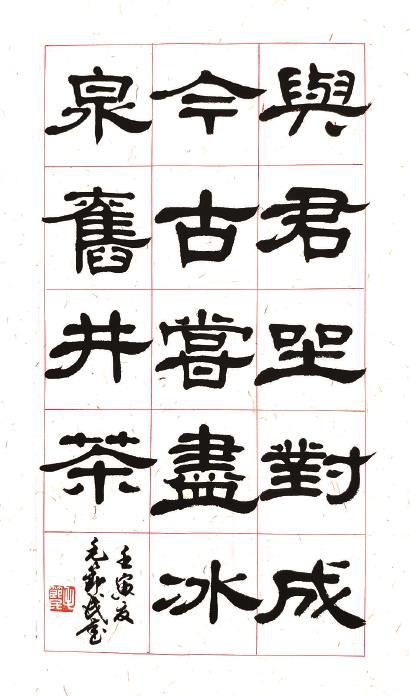 與君坐對成
今古嘗盡冰
泉舊井茶
壬寅夏